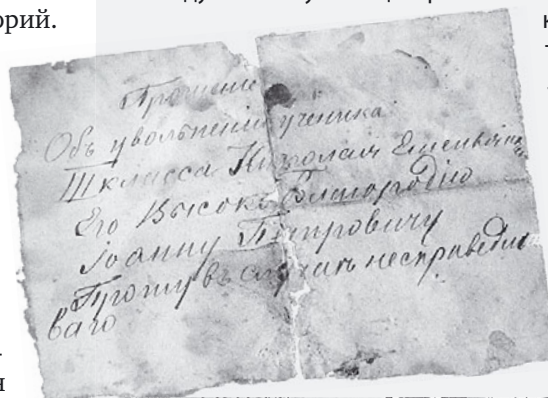 орий.
Прошеніе
Объ увольненіи ученика
III класса Николая Емельян
Его Высокъ Благородію
Іоанну Петровичу
Прошу въ случаѣ несправедли
ваго
я